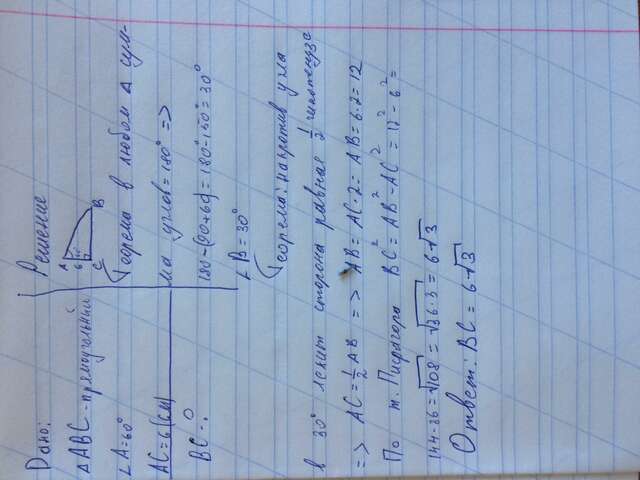 Дано:
ΔABC - прямоугольный
∠A=60°
AC=6(см)
BC-?
Решение
A
6 60°
C B
Теорема в любом Δ сум-
ма углов=180° =>
180-(90+60)=180-150°=30°
∠B=30°
Теорема: напротив угла
в 30° лежит сторона равная 1/2 гипотенузе
=> AC=1/2 AB => AB=AC·2=AB=6·2=12
По т. Пифагора BC²=AB²-AC²=12²-6²=
144-36=√108=√36·3=6√3
Ответ: BC=6√3